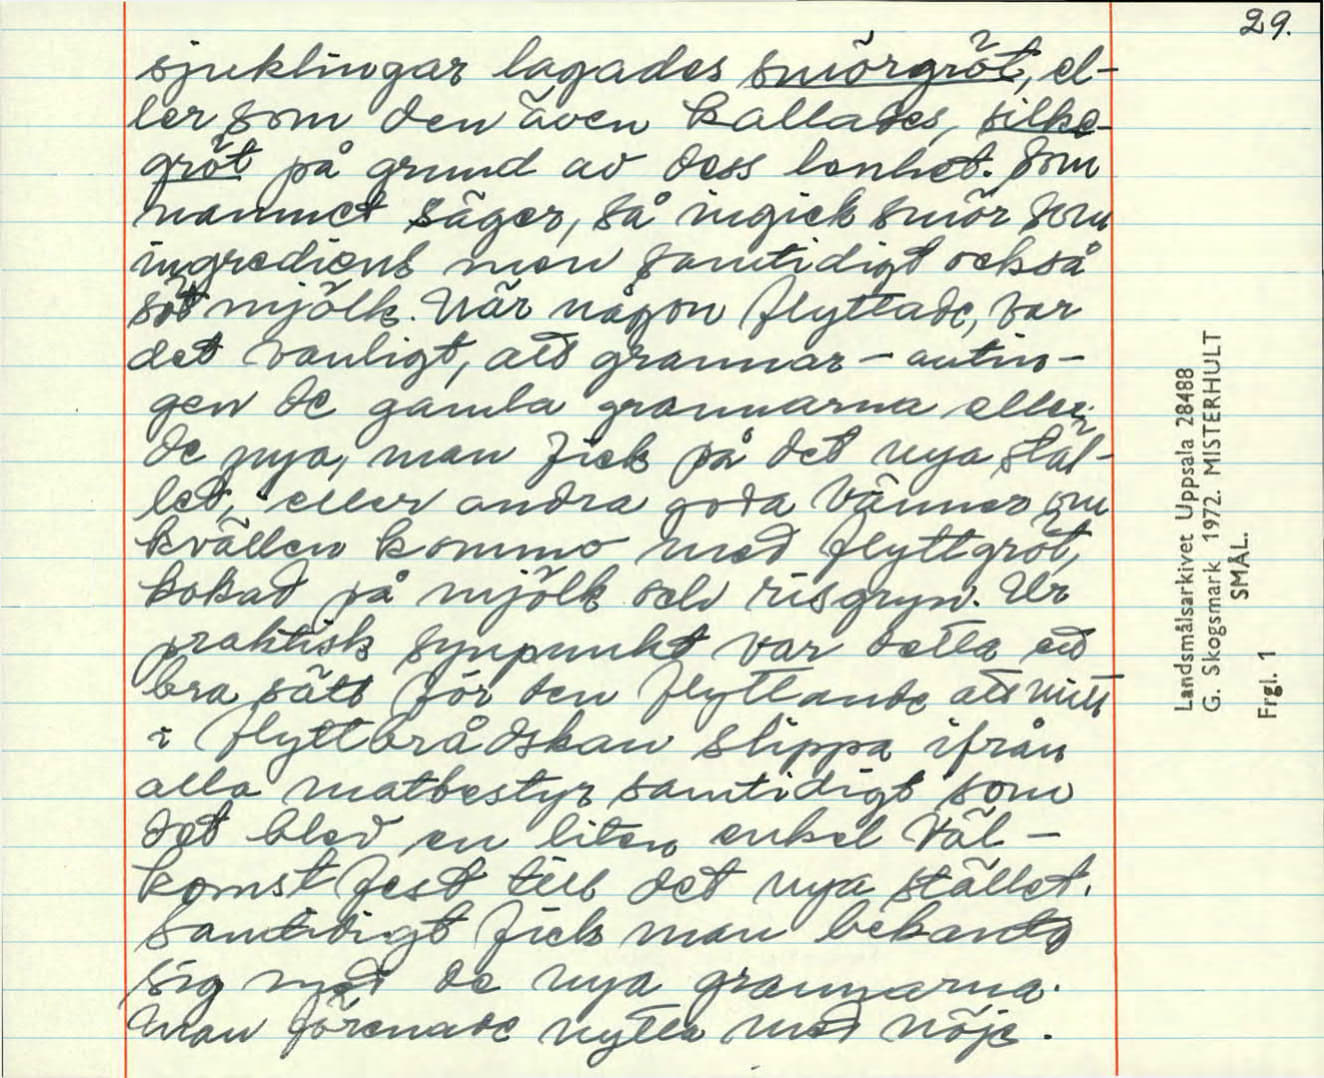 29.
sjuklingar lagades smörgröt, el-
ler som den även kallades, silke-
gröt på grund av dess lenhet. Som
namnet säger, så ingick smör som
ingrediens men samtidigt också
söt mjölk. När någon flyttade, var
det vanligt, att grannar - antin-
gen de gamla grannarna eller
de nya, man fick på det nya stäl-
let, eller andra goda vänner om
kvällen kommo med flyttgröt,
kokad på mjölk och risgryn. Ur
praktisk synpunkt var detta ett
bra sätt för den flyttande att mitt
i flyttbrådskan slippa ifrån
alla matbestyr samtidigt som
det blev en liten enkel väl-
komstfest till det nya stället.
Samtidigt fick man bekanta
sig med de nya grannarna.
Man förenade nytta med nöje.
Landsmålsarkivet Uppsala 28488
G. Skogsmark 1972. MISTERHULT
SMÅL.
Frgl. 1